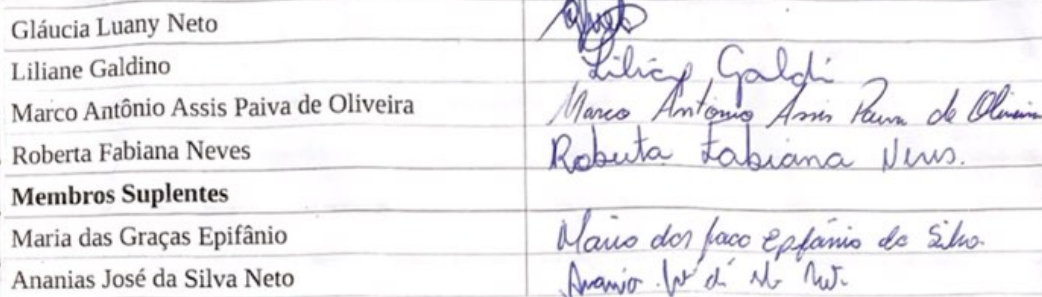 Gláucia Luany Neto
Liliane Galdino Galdi
Marco Antônio Assis Paiva de Oliveira Marco Antônio Assis Paiva de Oliveira
Roberta Fabiana Neves Roberta Fabiana Neves.
Membros Suplentes
Maria das Graças Epifânio Epifânio da Silva.
Ananias José da Silva Neto